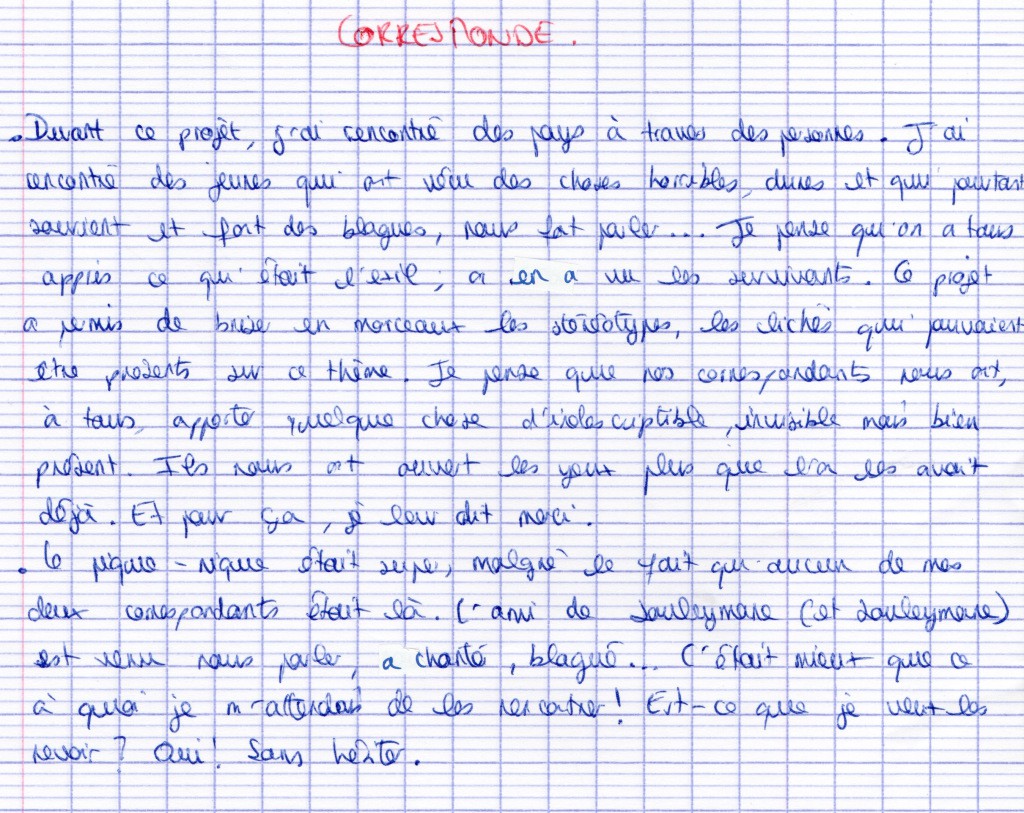 CORRESPONDE.
. Durant ce projet, j'ai rencontré des pays à travers des personnes. J'ai
rencontré des jeunes qui ont vécu des choses horribles, dures et qui pourtant
sourient et font des blagues, nous font parler... Je pense qu'on a tous
appris ce qu'était l'exil, on en a vu les survivants. Ce projet
a permis de briser en morceaux les stéréotypes, les clichés qui pouvaient
être présents sur ce thème. Je pense que nos correspondants nous ont,
à tous, apporté quelque chose d'indescriptible, invisible mais bien
présent. Ils nous ont ouvert les yeux plus que l'on les avait
déjà. Et pour ça, je leur dit merci.
. Ce pique-nique était super, malgré le fait qu'aucun de mes
deux correspondants était là. L'ami de Souleymane (et Souleymane)
est venu nous parler, a chanté, blagué... C'était mieux que ce
à quoi je m'attendais de les rencontrer! Est-ce que je veux les
revoir? Oui! Sans hésiter.